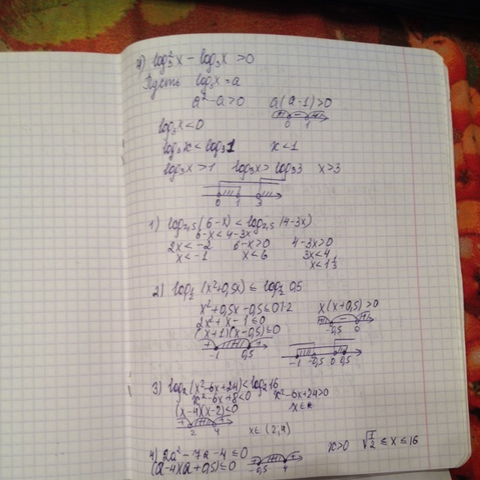 4) log₃²x - log₃x > 0
Пусть log₃x = a
a² - a > 0   a(a-1) > 0
0 1
log₃x < 0
log₃x < log₃1   x < 1
log₃x > 1   log₃x > log₃3   x > 3
0 1 3
1) log₂,₅(6-x) < log₂,₅(4-3x)
6-x < 4-3x
2x < -2   6-x > 0   4-3x > 0
x < -1   x < 6   3x < 4
x < 1,3
(x² + 0,5x) ≤ 0,5
x² + 0,5x - 0,5 ≤ 0   x(x+0,5) > 0
2x² + x - 1 ≤ 0   -0,5 0
(x+1)(x-0,5) ≤ 0
-1 0,5   -1 -0,5 0 0,5
3) log₂(x²-6x+24) < log₂16
x²-6x+8 < 0   x²-6x+24 > 0
(x-4)(x-2) < 0
2 4   x ∈ (2,4)
4) 2a² - 7a - 4 ≤ 0   x > 0   ≤ x ≤ 16
(a-4)(a+0,5) ≤ 0   -0,5 4